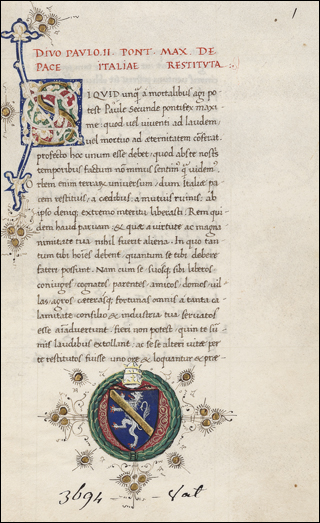 1
DIVO PAVLO. II. PONT. MAX. DE
PACE ITALIAE RESTITVTA :.
SIQVID unq̃ a mortalibus agi po
test Paule Secunde pontifex maxi
me: quod uel uiuenti ad laudem,
uel mortuo ad aeternitatem cõferat:
profecto hoc unum esse debet: quod abs te nostris
temporibus factum nõ minus sentim9 q̃ uidem9.
rbem enim terraҳ uniuersum, dum Italiã pa
rem restituis, a caedibus, a mutuis ruinis, ab
ipso deniq; extremo interitu liberasti. Rem qui
dem haud paruam, & quae a uirtute ac magna
nimitate tua nihil fuerit aliena. In quo tan
tum tibi hoĩes debent, quantum se tibi debere
fateri possunt. Nam cum se, suosq; sibi liberos
coniuges, cognatos, parentes, amicos, domos, uil
las, agros, caeterasq; fortunas omnis a tanta ca
lamitate consilio & industria tua seruatos
esse aiaduertunt: fieri non potest, quin te sũ
mis laudibus extollant, ac se se alteri uitae per
te restitutos fuisse uno ore & loquantur & prae
3694 Vat